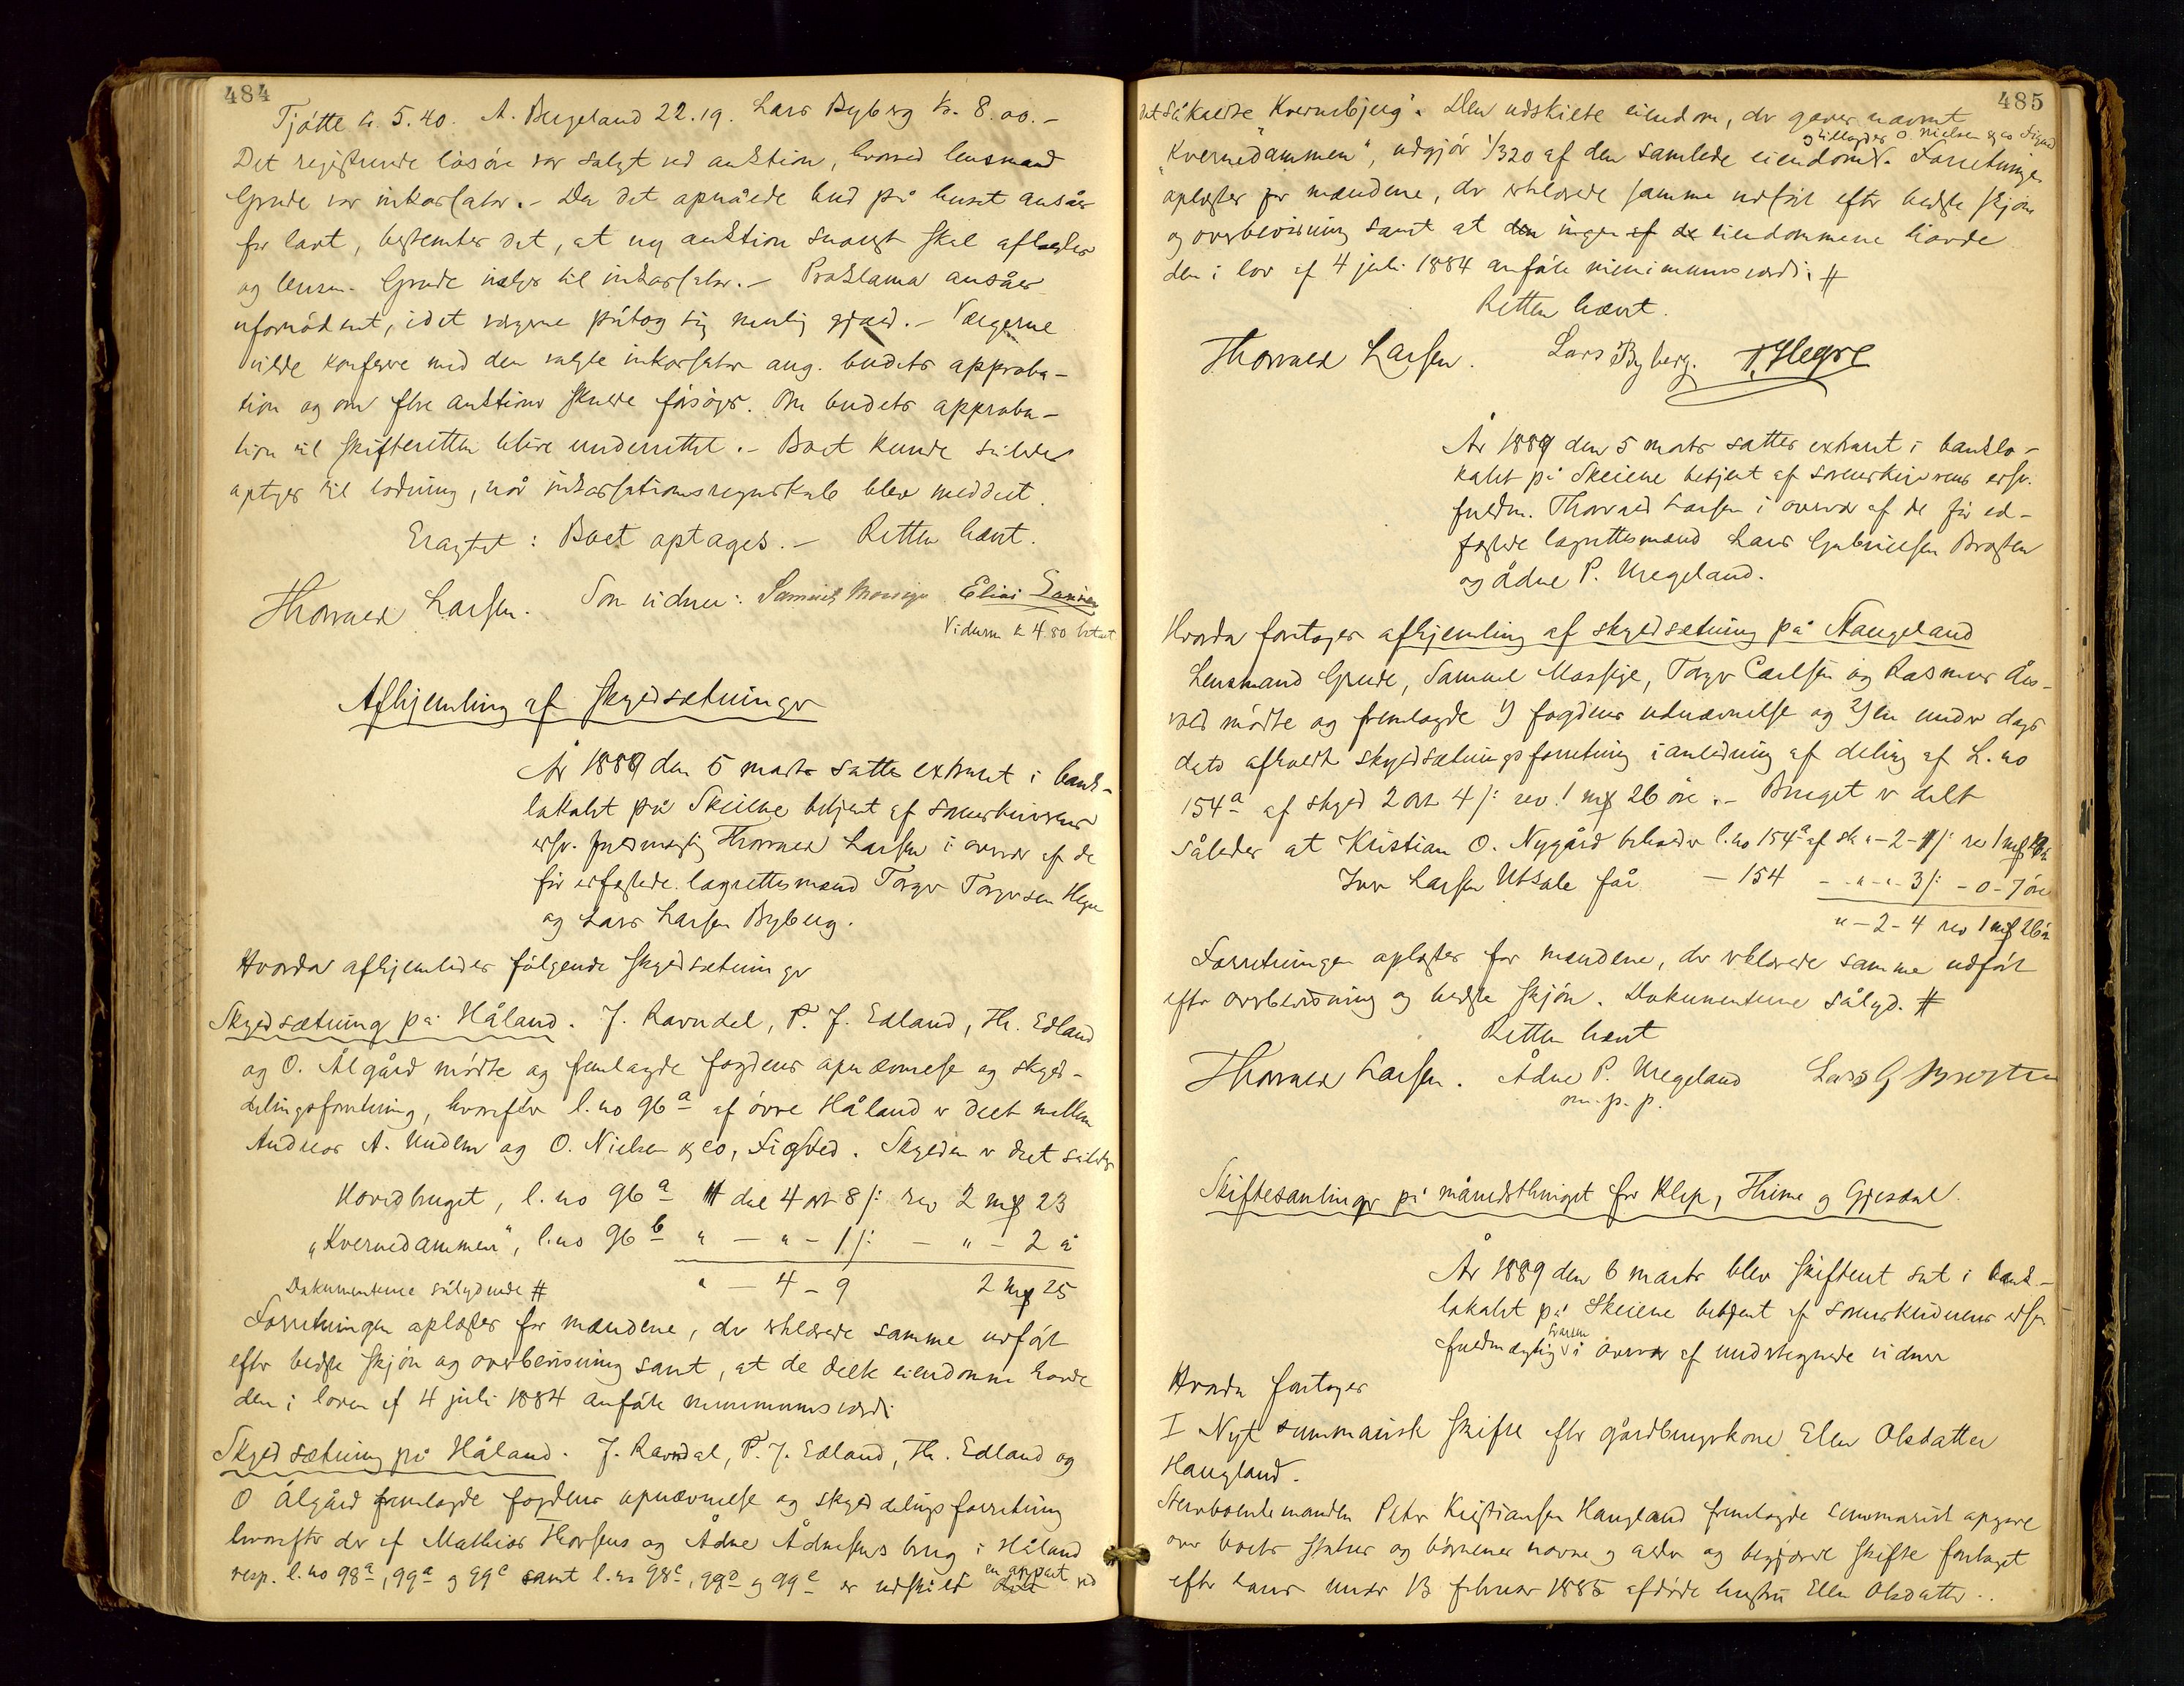 484
Tjøtte kr. 5.40. A. Bergeland 22.19. Lars Byberg kr. 8.00.-
Det registrerede løsøre var solgt ved auktion, hvorved lensmand
Grude var inkassator.- Da det opnåede bud på huset ansåes
for lavt, bestemtes det, at ny auktion snarest skal afholdes
og lensm. Grude vælges til inkassator.- Proklama ansåes
ufornødent, idet vergerne påtog sig mulig gjæld.- Vergerne
vilde konferere med den valgte inkassator ang. budets approba-
tion og om flere auktioner skulde forsøges. Om budets approba-
tion vil skifteretten blive underrettet.- Boet kunde således
optages til lodning, når inkassationsregnskab blev meddelt.
Eragtet: Boet optages.- Retten hævet.
Thorvald Larsen. Som vidner: Samuel Mossige Elias
Vidnern kr 4.80 betalt
Afhjemling af skyldsætninger
År 1889 den 5 marts sattes extraret i bank-
lokalet på Skeiene betjent af sorenskriverens
edsv. fuldmægtig Thorvald Larsen i overvær af de
før edfæstede lagrettesmænd Torger Torgersen Hegre
og Lars Larsen Byberg.
Hvorda afhjemledes følgende skyldsætninger
Skyldsætning på Håland. J. Ravndal, P. J. Edland, Th. Edland
og O. Ålgård mødte og fremlagde fogdens opnævnelse og skyld-
delingsforretning, hvorefter l.no 96a af øvre Håland er delt mellem
Andreas A. Undem og O. Nielsen & co, Figved. Skylden er delt således
Hovedbruget, l.no 96a dal 4 ort 8 s: rev 2 mk 23
"Kvernedammen", l.no 96b " — " - 1 s: — " - 2 ø
Dokumenterne sålydende # " — 4 - 9 2 mk 25
Forretningen oplæstes for mændene, der erklærede samme udført
efter bedste skjøn og overbevisning samt, at de delte eiendomme havde
den i loven af 4 juli 1884 anførte minimumsværdi
Skyldsætning på Håland. J. Ravndal, P. J. Edland, Th. Edland og
O Ålgård fremlagde fogdens opnævnelse og skylddelingsforretning
hvorefter der af Mathias Thorsens og Ådne Ådnesens brug i Håland
resp. l.no 98a, 99a og 99c samt l.no 98c, 99d og 99e er udskilt en part ved
485
det såkaldte "Kvernebjerg". Den udskilte eiendom, der gaves navnet
og tillagdes O. Nielsen & co Figved
"Kvernedammen", udgjør 1/320 af den samlede eiendom. Forretningen
oplæstes for mændene, der erklærede samme udført efter bedste skjøn
og overbevisning samt at ingen af eiendommene havde
den i lov af 4 juli 1884 anførte minimumsværdi #
Retten hævet.
Thorvald Larsen. Lars Byberg. T. Hegre
År 1889 den 5 marts sattes extraret i banklo-
kalet på Skeiene betjent af sorenskriverens edsv.
fuldm. Thorvald Larsen i overvær af de før ed-
fæstede lagrettesmænd Lars Gabrielsen Brosten
og Ådne P. Uregeland.
Hvorda foretoges afhjemling af skyldsætning på Stangeland
Lensmand Grude, Samuel Mossige, Torger Carlsen og Rasmus Aus-
vold mødte og fremlagde 1) fogdens udnævnelse og 2) en under dags
dato afholdt skyldsætningsforretning i anledning af deling af L. no
154a af skyld 2 ort 4 s: rev. 1 mk 26 øre.- Bruget er delt
således at Kristian O. Nygård beholder l.no 154a af sk "-2-1 s: rev 1 mk 19 ø
Iver Larsen Utsole får — 154 - "-"-3 s: -0-7 øre
"-2-4 rev 1 mk 26 ø
Forretningen oplæstes for mændene, der erklærede samme udført
efter overbevisning og bedste skjøn. Dokumenterne sålyd. #
Retten hævet
Thorvald Larsen. Ådne P. Uregeland Lars G Brosten
m. p. p.
Skiftesamlinger på månedsthinget for Klep, Thime og Gjesdal
År 1889 den 6 marts blev skifteret sat i bank-
lokalet på Skeiene betjent af sorenskriverens edsv.
fuldmægtig Larsen i overvær af undertegnede vidner
Hvorda foretoges
I Nyt summarisk skifte efter gårdbrugerkone Ellen Olsdatter
Haugland.
Sterboenkemanden Peter Kristiansen Haugland fremlagde summarisk opgave
over boets status og børnenes navne og alder og begjærede skifte foretaget
efter hans under 13 februar 1885 afdøde hustru Ellen Olsdatter.